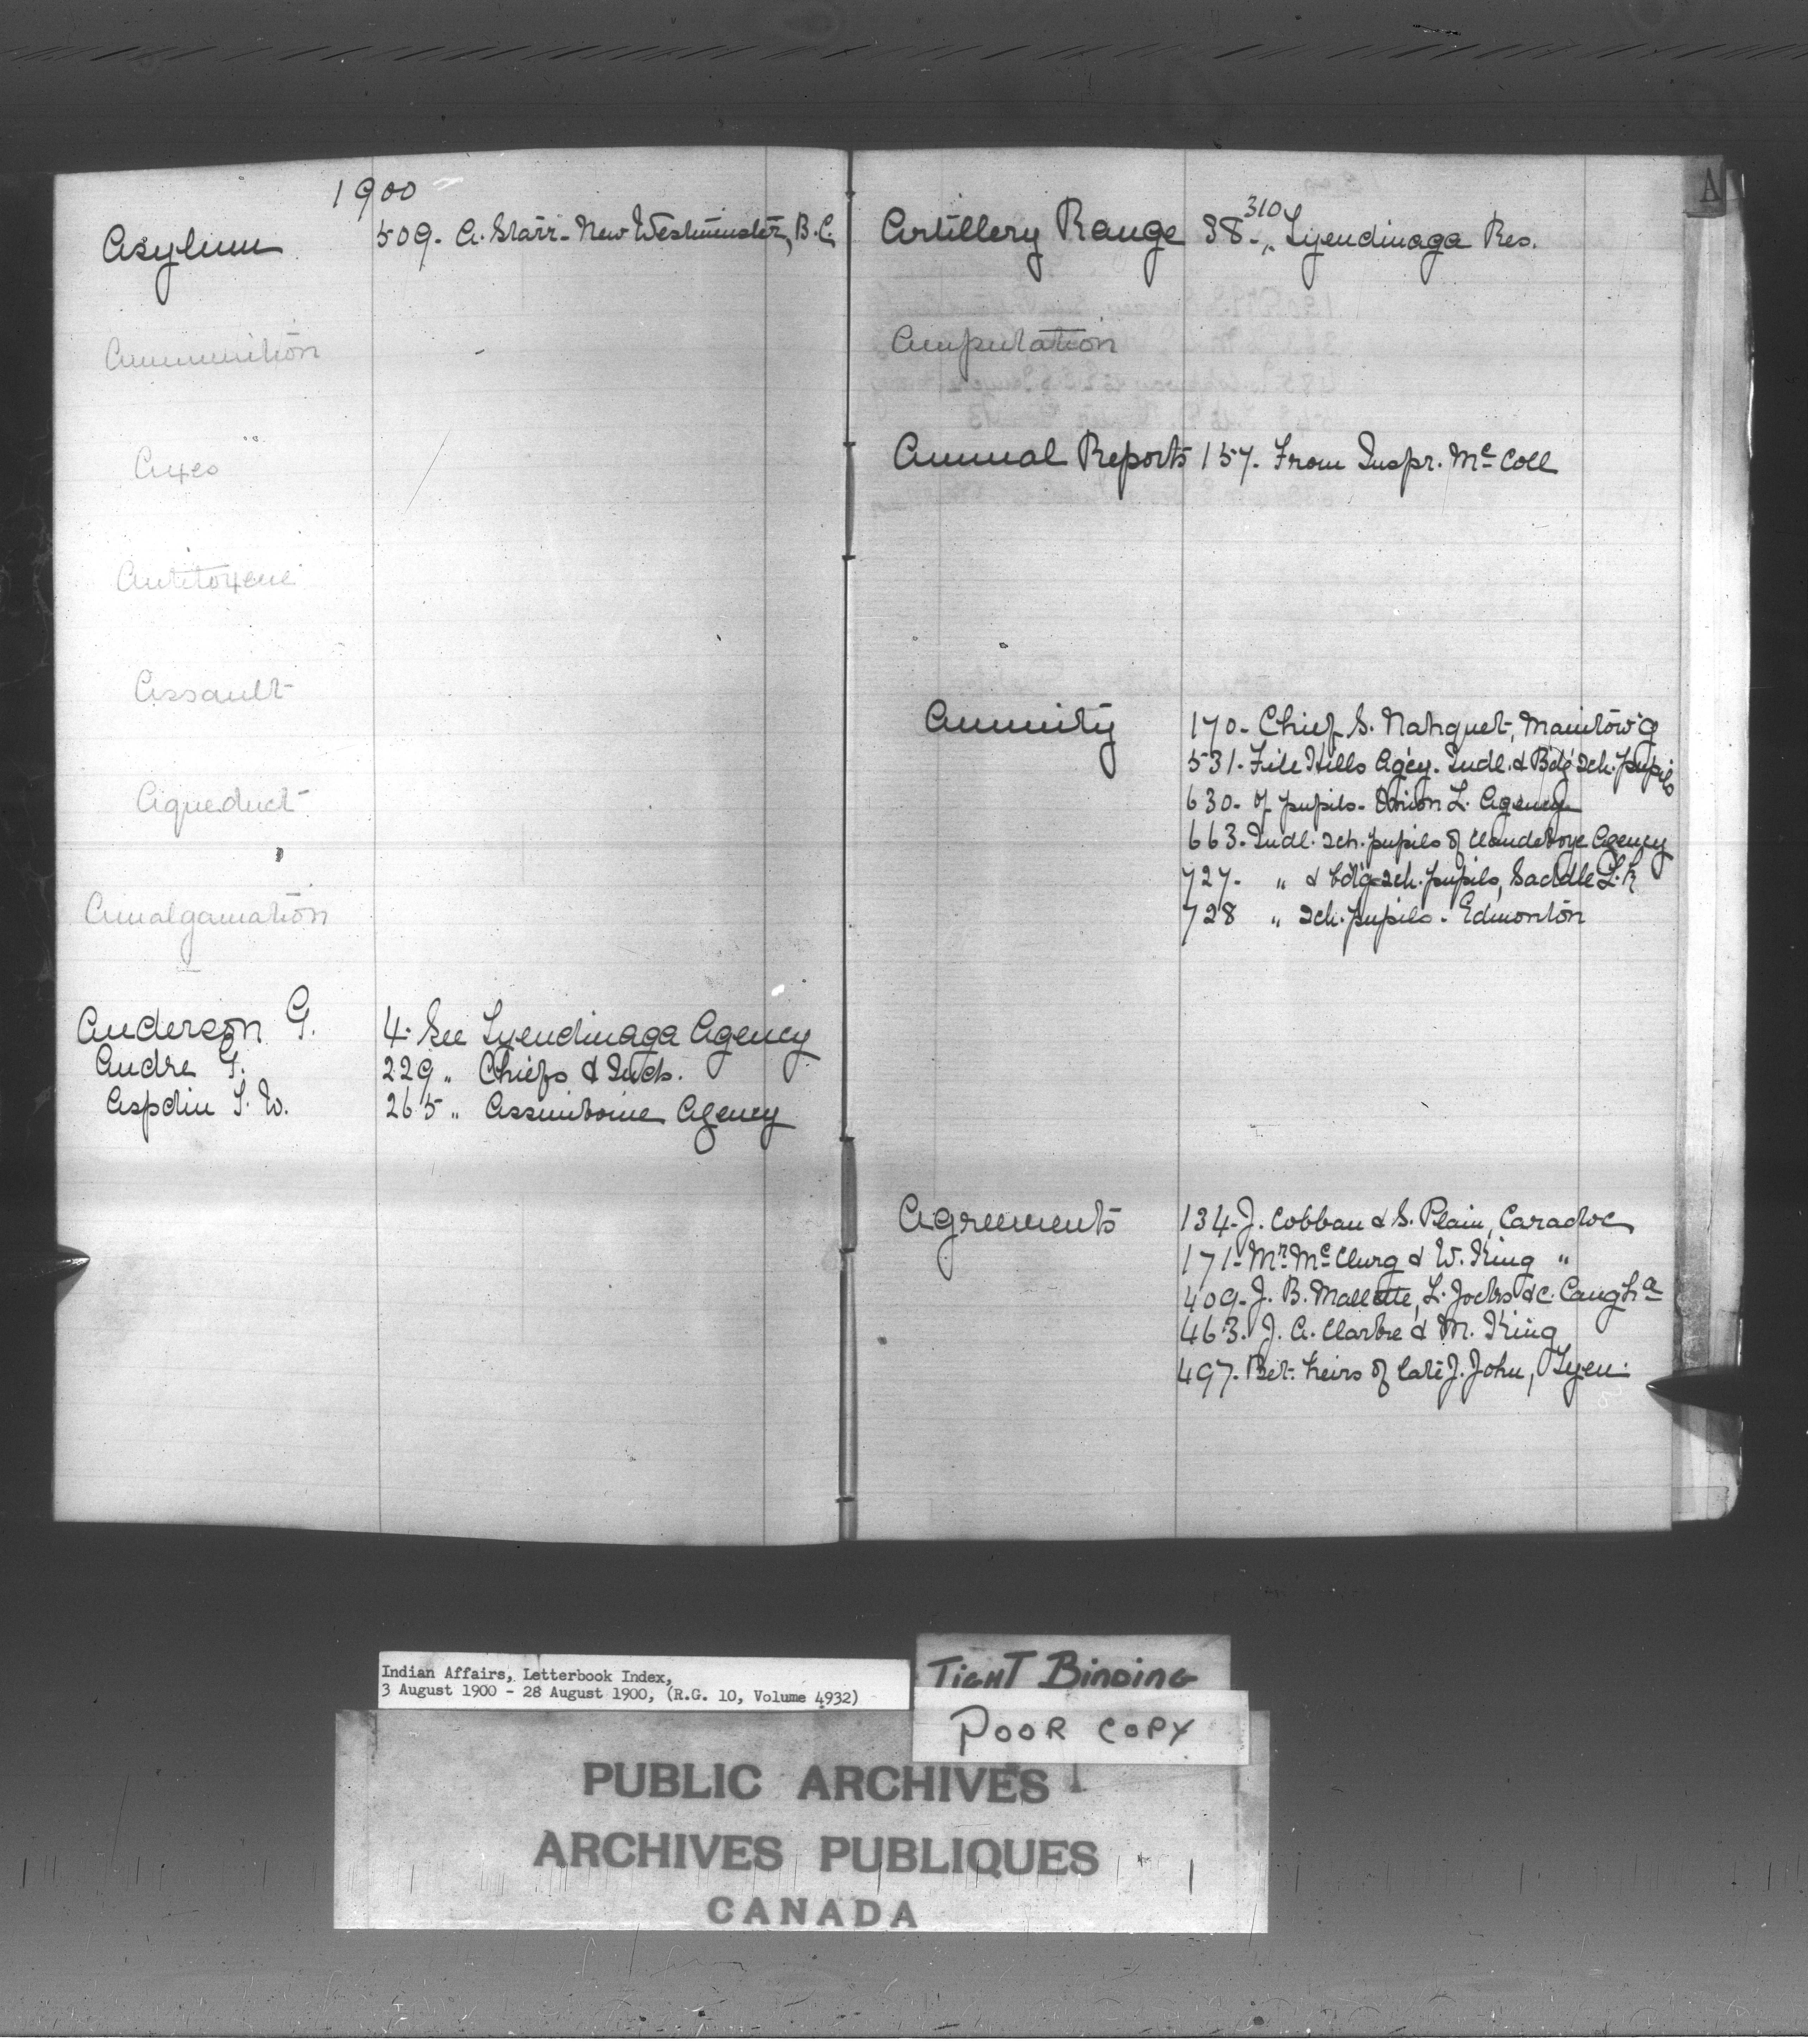 1900
Asylum 509. A. Starr - New Westminster, B.C.
Ammunition
Axes
Antitoxene
Assault
Aqueduct
Amalgamation
Anderson G. 4. See Tyendinaga Agency
Andre F. 229 „ Chiefs & Inds.
Aspdin T. W. 265 „ Assiniboine Agency
A
Artillery Range 38-, 310 Tyendinaga Res.
Amputation
Annual Reports 157. From Inspr. McColl
Annuity 170- Chief S. Nahquet, Manitow'g
531. File Hills Agcy. Indl. & Bdg Sch. pupils
630- of pupils - Onion L. Agency
663. Indl. Sch. pupils of Clandeboye Agency
727- „ & bdg sch. pupils, Saddle L.
728 „ Sch. pupils - Edmonton
Agreements 134- J. Cobban & S. Plain, Caradoc
171- Mr. McClurg & W. King „
409- J. B. Mallette, L. Jocks &c. Caugh a
463. J. A. Clarke & M. King
497. Bet. heirs of late J. John, Tyen.
Indian Affairs, Letterbook Index,
3 August 1900 - 28 August 1900, (R.G. 10, Volume 4932)
TIGHT BINDING
POOR COPY
PUBLIC ARCHIVES
ARCHIVES PUBLIQUES
CANADA